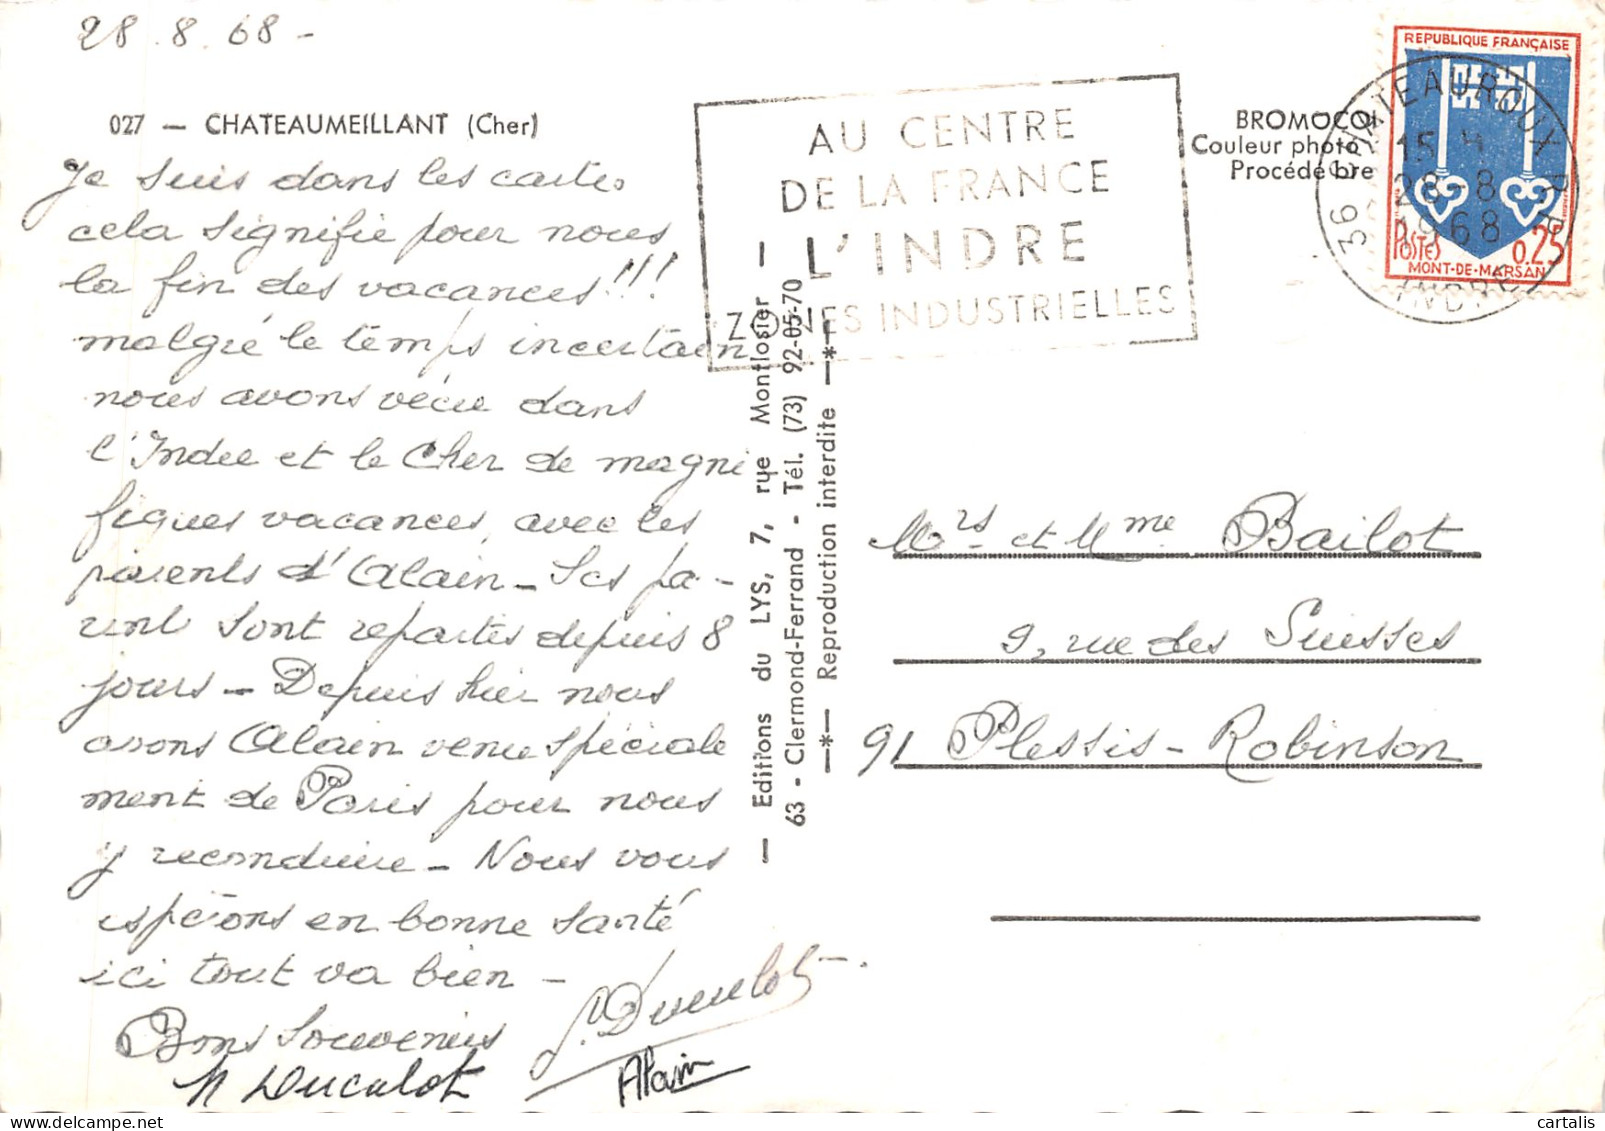 28.8.68 -
027 — CHATEAUMEILLANT (Cher)
Je suis dans les cartes
cela signifie pour nous
la fin des vacances !!!
malgré le temps incertain
nous avons vécu dans
l'Indre et le Cher de magni
fiques vacances, avec les
parents d'Alain - Ses pa-
rents sont repartis depuis 8
jours - Depuis hier nous
avons Alain venu spéciale
ment de Paris pour nous
y reconduire - Nous vous
espérons en bonne santé
ici tout va bien -
Bons Souvenirs
Alain
AU CENTRE
DE LA FRANCE
L'INDRE
ZONES INDUSTRIELLES
— Editions du LYS, 7, rue Montlosier —
63 - Clermond-Ferrand - Tél. (73) 92-05-70
—*— Reproduction interdite —*—
BROMOCO
Couleur photo
Procédé bre
REPUBLIQUE FRANÇAISE
POSTES
0.25
MONT-DE-MARSAN
36 CHATEAUROUX R.P.
15 H
28-8
1968
INDRE
Mrs et Mme Bailot
9, rue des Suisses
91 Plessis-Robinson
cartalis